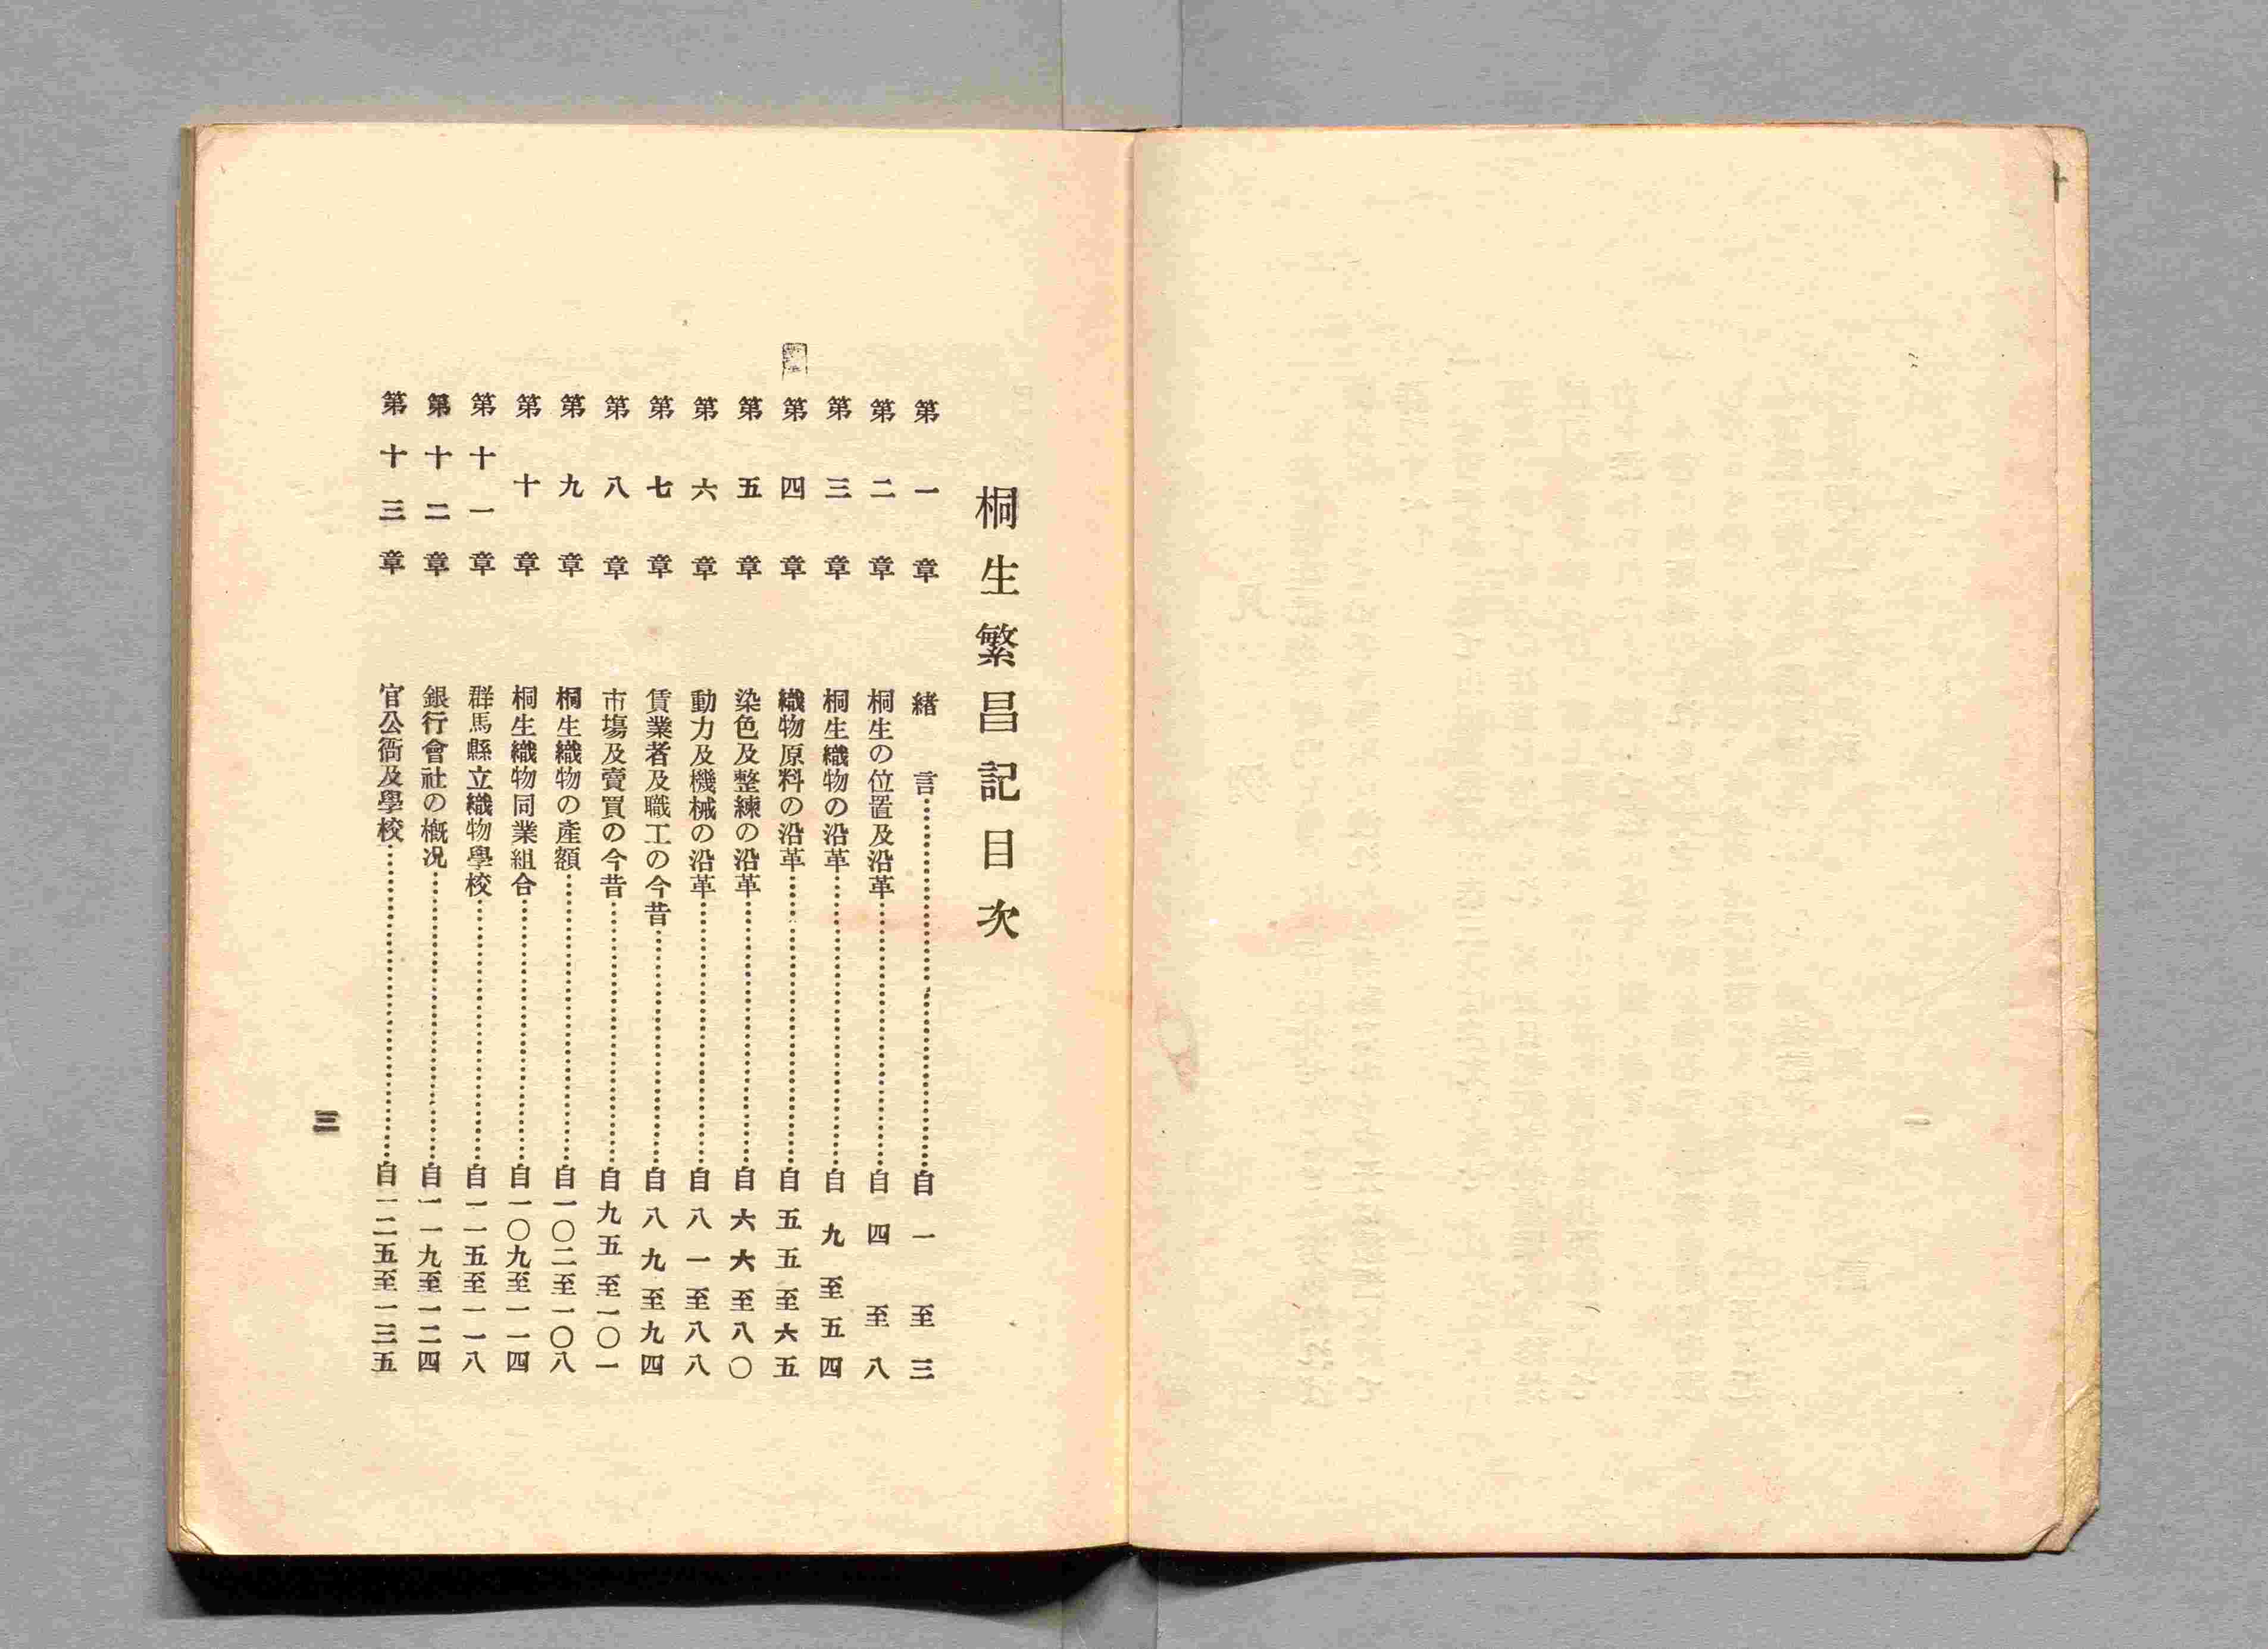 桐生繁昌記目次
第一章 緒言…………自一至三
第二章 桐生の位置及沿革…………自四至八
第三章 桐生織物の沿革…………自九至五四
第四章 織物原料の沿革…………自五五至六五
第五章 染色及整練の沿革…………自六六至八〇
第六章 動力及機械の沿革…………自八一至八八
第七章 賃業者及職工の今昔…………自八九至九四
第八章 市場及賣買の今昔…………自九五至一〇一
第九章 桐生織物の產額…………自一〇二至一〇八
第十章 桐生織物同業組合…………自一〇九至一一四
第十一章 群馬縣立織物學校…………自一一五至一一八
第十二章 銀行會社の槪况…………自一一九至一二四
第十三章 官公衙及學校…………自一二五至一三五
三